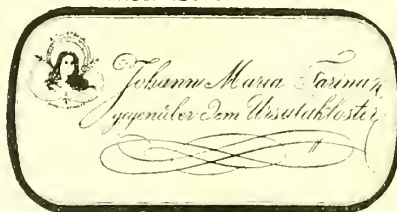 Johann Maria Farina
gegenüber dem Ursulakloster